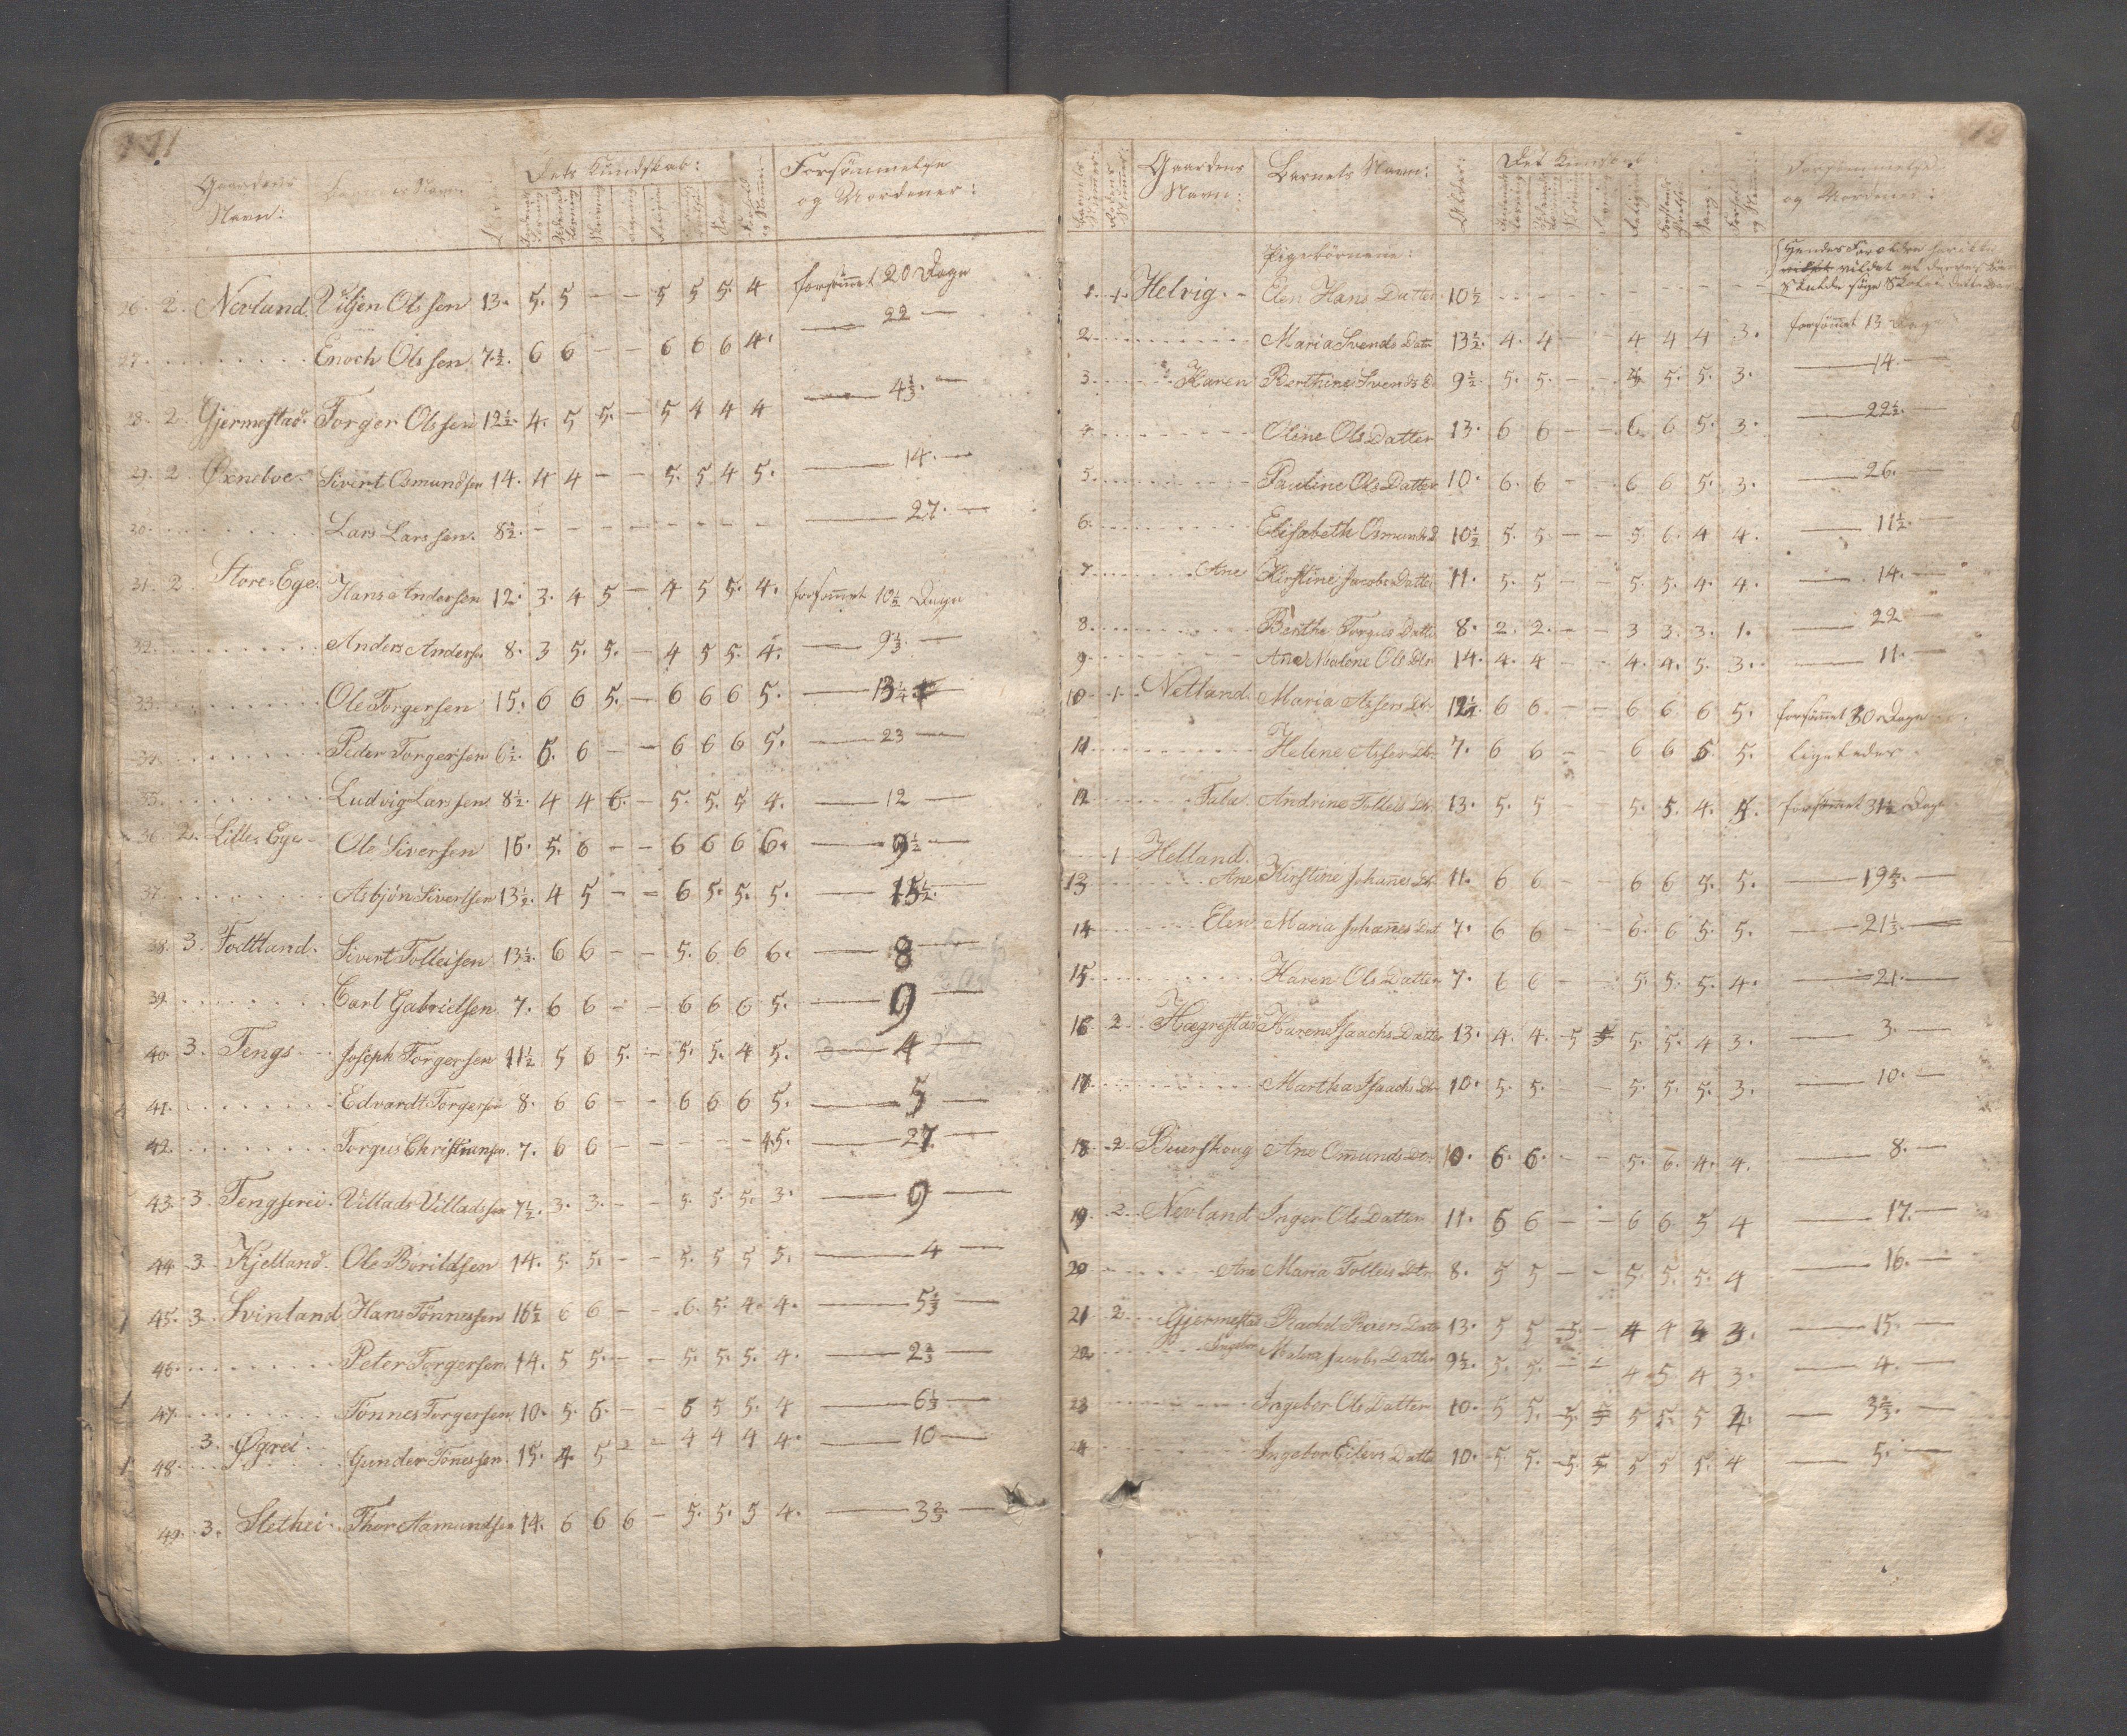 Gaardens Navn: Barnets Navn: Dets Kundskab: Forsömmelse og Uordener:
26. 2. Nevland Viljen Olssen 13. 5. 5 - - 5 5 5. 4 forsömet 20 Dage
27. Enoch Olssen 7½. 6 6 - - 6 6 6 4. — 22 —
28. 2. Gjermestad. Torger Olssen 12½. 4. 5 5. - 5 4 4 4 — 4⅓. —
29. 2 Øxneboe. Sivert Osmundsen 14. 4 4 - - 5. 5 4 5. — 14. —
30. Lars Larssen. 8½. - - - - - - - - — 27. —
31. 2 Store-Ege. Hans Andersen 12. 3. 4 5 - 4 5 5. 4. forsömet 10½ Dage
32. Anders Anders. 8. 3 5. 5. - 4 5 5. 4. — 9⅓. —
33. Ole Torgersen 15. 6 6 5. - 6 6 6 5. — 13¼ —
34. Peder Torgersen 6½. 6. 6 - - 6 6 6 5. — 23 —
35. Ludvig Larssen 8½. 4 4 6. - 5. 5. 5 4. — 12 —
36. 2. Lille-Ege Ole Siversen 16. 5. 6 - - 6 6 6 6. — 9½ —
37. Asbjön Sivertsen 13½. 4 5 - - 6 5. 5. 5. — 15½. —
38. 3. Fodtland. Sivert Tolleisen 13½. 6 6 - - 5. 6 6 6. — 8 —
39. Carl Gabrielsen. 7. 6 6 - - 6 6 6 5. — 9 —
40. 3. Tengs. Joseph Torgersen 11½ 5 6 5. - 5. 5. 4 5. — 4 —
41. Edvardt Torgersen 8. 6 6 - - 6 6 6 5. — 5 —
42. Torgus Christiansen. 7. 6 6 - - - - - 4.5. — 27 —
43. 3 Tengserei. Villads Villadssen 7½. 3. 3. - - 5. 5. 5. 3. — 9 —
44. 3. Kjelland. Ole Borildsen 14. 5 5. - - 5. 5 5 5. — 4 —
45. 3. Svinland Hans Tönnessen 16½ 6 6 - - 6. 5. 4. 4. — 5⅓ —
46. Peter Torgersen 14. 5 5. - - 5. 5. 5. 4. — 2⅔ —
47. Tönnes Torgersen 10. 5. 6. - - 6 5 5. 4 — 6⅓ —
48. 3. Øgrei. Gunder Tönessen. 15. 4. 5 - - 4 4 4 4. — 10 —
49. 3. Slethei. Thor Aamundsen 14. 6 6 6 - 5. 5. 5 4. — 3⅔ —
Barnets Nummer: Rodens Nummer: Gaardens Navn: Barnets Navn: Alder: Det Kundskab Forsömmelse og Uordener:
Pigebörnene:
1. 1. Helvig. Elen Hans Datter 10½ - - - - - - - -
2. Maria Svends Datr 13½. 4. 4 - - 4 4 4 3. forsömet 13 Dage
3. Karen Berthine Svends D. 9½. 5. 5. - - 5. 5. 3. — 14. —
4. Oline Ols Datter 13. 6 6 - - 6 6 5. 3. — 22½. —
5. Pauline Ols Datter 10. 6. 6 - - 6 6 5. 3. — 26. —
6. Elisabeth Osmunds D 10½ 5. 5. - - 5. 6. 4 4. — 11½. —
7. Ane Kirstine Jacobs Datter 11. 5. 5 - - 5. 5. 4. 4. — 14. —
8. Berthe Torgus Datter 8. 2. 2. - - 3 3. 3. 1. — 22 —
9. Ane Malene Ols Dtr 14. 4. 4 - - 4. 4. 5. 3. — 11. —
10. 1. Netland. Maria Assers Dtr. 12½. 6 6 - - 6 6 6 5. forsömet 30 Dage
11. Helene Assers Dtr. 7. 6 6 - - 6 6 6. 5. ligeledes
12. Talu. Andrine Tolleis Dtr. 13. 5. 5 - 5. 5. 4. 5. forsömet 31½ Dage
1 Helland.
13 Ane Kirstine Johanes Dtr 11. 6 6 - - 6 6 5. 5. — 19⅔. —
14 Elen Maria Johanes Dat 7. 6 6 - - 6. 6 5. 5. — 21⅓. —
15. Karen Ols Datter 7. 6 6 - - 5. 5. 5. 4. — 21. —
16. 2. Hægrestad Karen Isaachs Datter 13. 4. 4. 5 5 5. 5. 4 3. — 3. —
17. Martha Isaachs Dtr 10. 5. 5. - - 5. 5. 5. 3. — 10. —
18. 2. Beuerskoug Ane Omunds Dtr. 10. 6. 6. - - 5. 6. 4. 4. — 8. —
19. 2. Nevland Inger Ols Datter 11. 6 6 - - 6 6. 5 4 — 17. —
20 Ane Maria Tolleis Dtr. 8. 5 5 - - 5. 5. 5. 4 — 16. —
21 2. Gjermestad Rachel Reiers Datr 13. 5 5 5. - 4 4 3 3. — 15. —
22. Ingebor Malena Jacobs Datter 9½. 5. 5. - - 4 5 4 3. — 4. —
23 Ingebor Ols Datter 10. 5 5. 5. 5 5 5. 5 4. — 3⅔. —
24 Ingebor Eilevs Datter 10. 5. 5. 5. 5. 5 5 5. 4 — 5. —